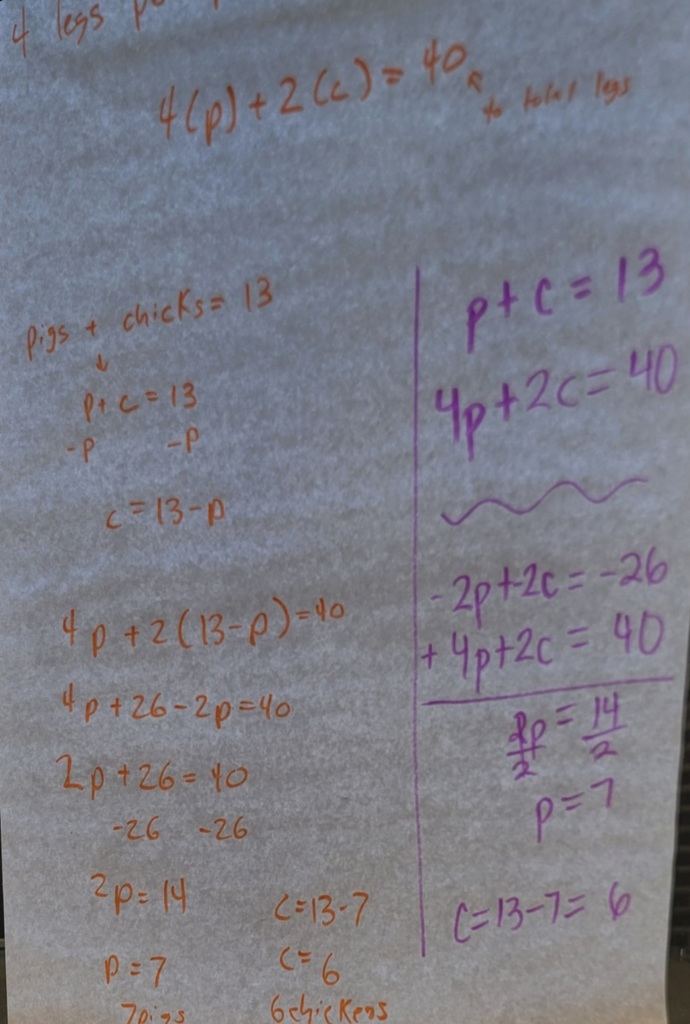 4 legs
4(p) + 2(c) = 40
to total legs
pigs + chicks = 13
↓
p + c = 13
-p -p
c = 13 - p
4p + 2(13-p) = 40
4p + 26 - 2p = 40
2p + 26 = 40
-26 -26
2p = 14
p = 7
7pigs
c = 13-7
c = 6
6chickens
p + c = 13
4p + 2c = 40
-2p+-2c = -26
+ 4p+2c = 40
2p/2 = 14/2
p = 7
C = 13-7 = 6